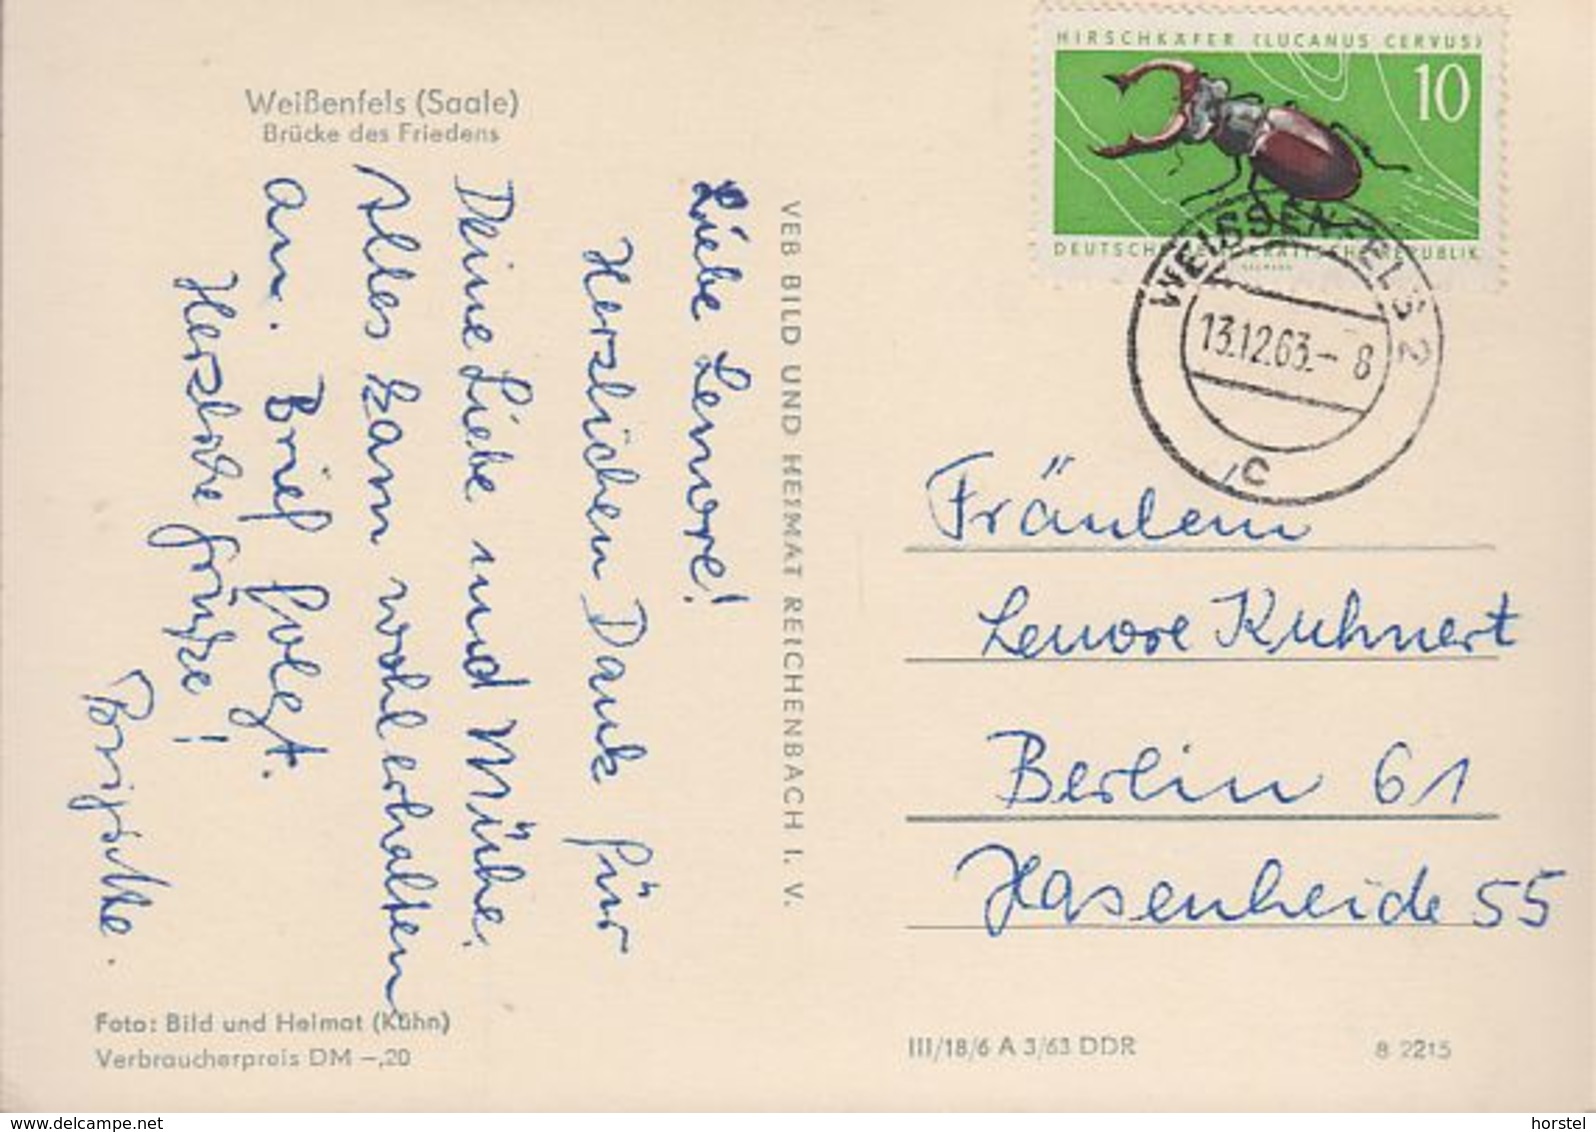 Weißenfels (Saale)
Brücke des Friedens
Liebe Lenore!
Herzlichen Dank für
Deine Liebe und Mühe.
Alles kam wohlerhalten
an. Brief folgt.
Herzliche Grüße!
Brigitte.
Foto: Bild und Heimat (Kühn)
Verbraucherpreis DM –,20
VEB BILD UND HEIMAT REICHENBACH I. V.
HIRSCHKÄFER (LUCANUS CERVUS)
10
DEUTSCHE DEMOKRATISCHE REPUBLIK
WEISSENFELS 2
13.12.63.- 8
c
Fräulein
Lenore Kuhnert
Berlin 61
Hasenheide 55
III/18/6 A 3/63 DDR
8 2215
www.delcampe.net
horstel